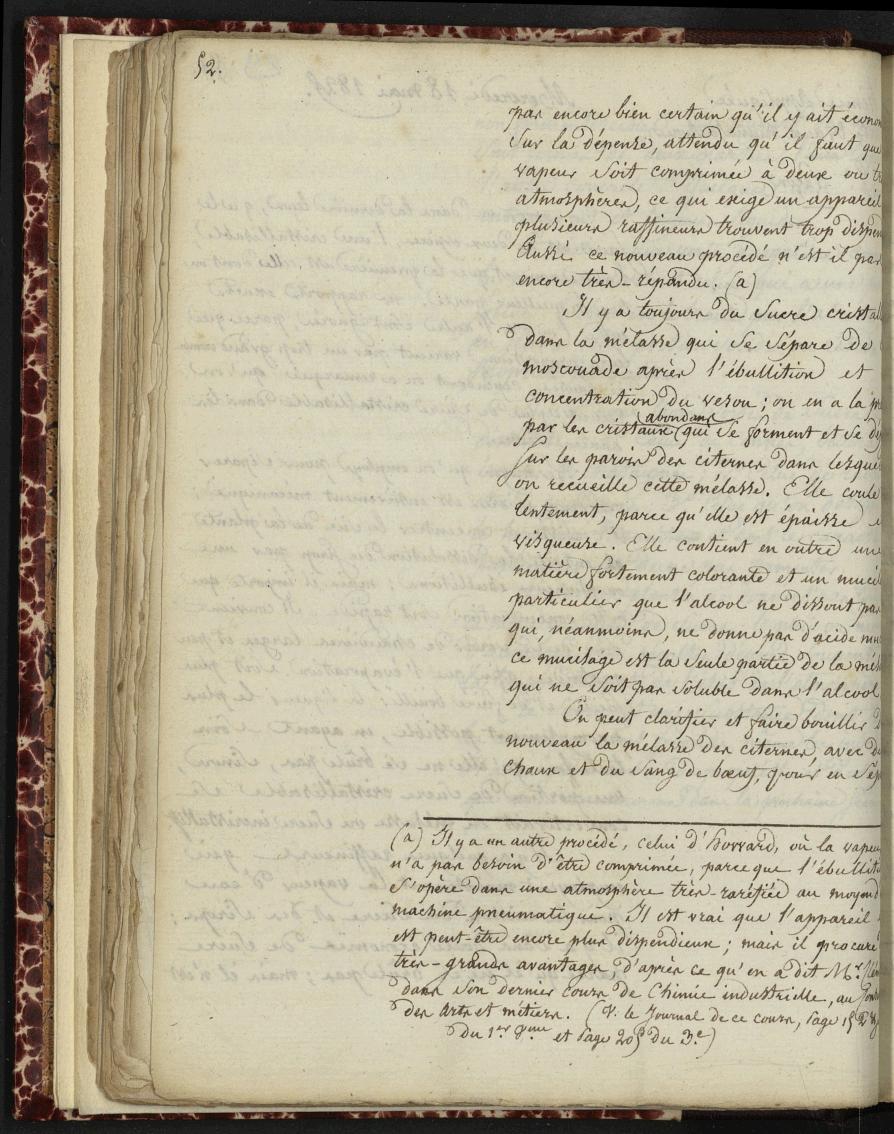 52.
pas encore bien certain qu'il y ait écono
sur la dépense, attendu qu'il faut que
vapeur soit comprimée à deux ou tr
atmosphères, ce qui exige un appareil
plusieurs raffineurs trouvent trop dispen
Aussi ce nouveau procédé n'est il pas
encore très-répandu. (a)
Il y a toujours du sucre cristal
dans la mélasse qui se sépare de
moscouade après l'ébullition et
concentration du vesou ; on en a la pr
abondans
par les cristaux qui se forment et se dé
sur les parois des citernes dans lesque
on recueille cette mélasse. Elle coule
lentement, parce qu'elle est épaisse e
visqueuse. Elle contient en outre une
matière fortement colorante et un muci
particulier que l'alcool ne dissout pas
qui, néanmoins, ne donne pas d'acide mu
ce mucilage est la seule partie de la mél
qui ne soit pas soluble dans l'alcool
On peut clarifier et faire bouillir d
nouveau la mélasse des citernes, avec de
chaux et du sang de bœuf, pour en sép
(a) Il y a un autre procédé, celui d'howard, où la vapeur
n'a pas besoin d'être comprimée, parce que l'ébullit
s'opère dans une atmosphère très-raréfiée au moyen d
machine pneumatique. Il est vrai que l'appareil
est peut-être encore plus dispendieux ; mais il procure
très-grands avantages, d'après ce qu'en a dit Mr. Clém
dans son dernier cours de Chimie industrielle, au Cons
des Arts et métiers. (V. le Journal de ce cours, page 152
du 1er vme et page 205 du 3e)